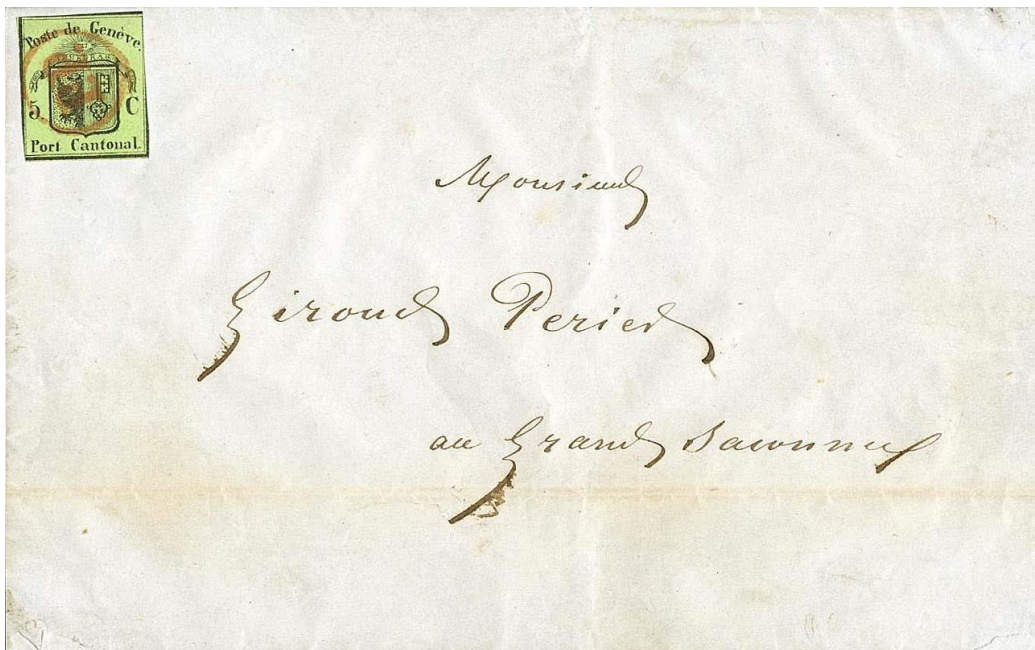 Poste de Genève.
5 C
Port Cantonal.
Monsieur
Giroud Perier
au Grand Saconnex